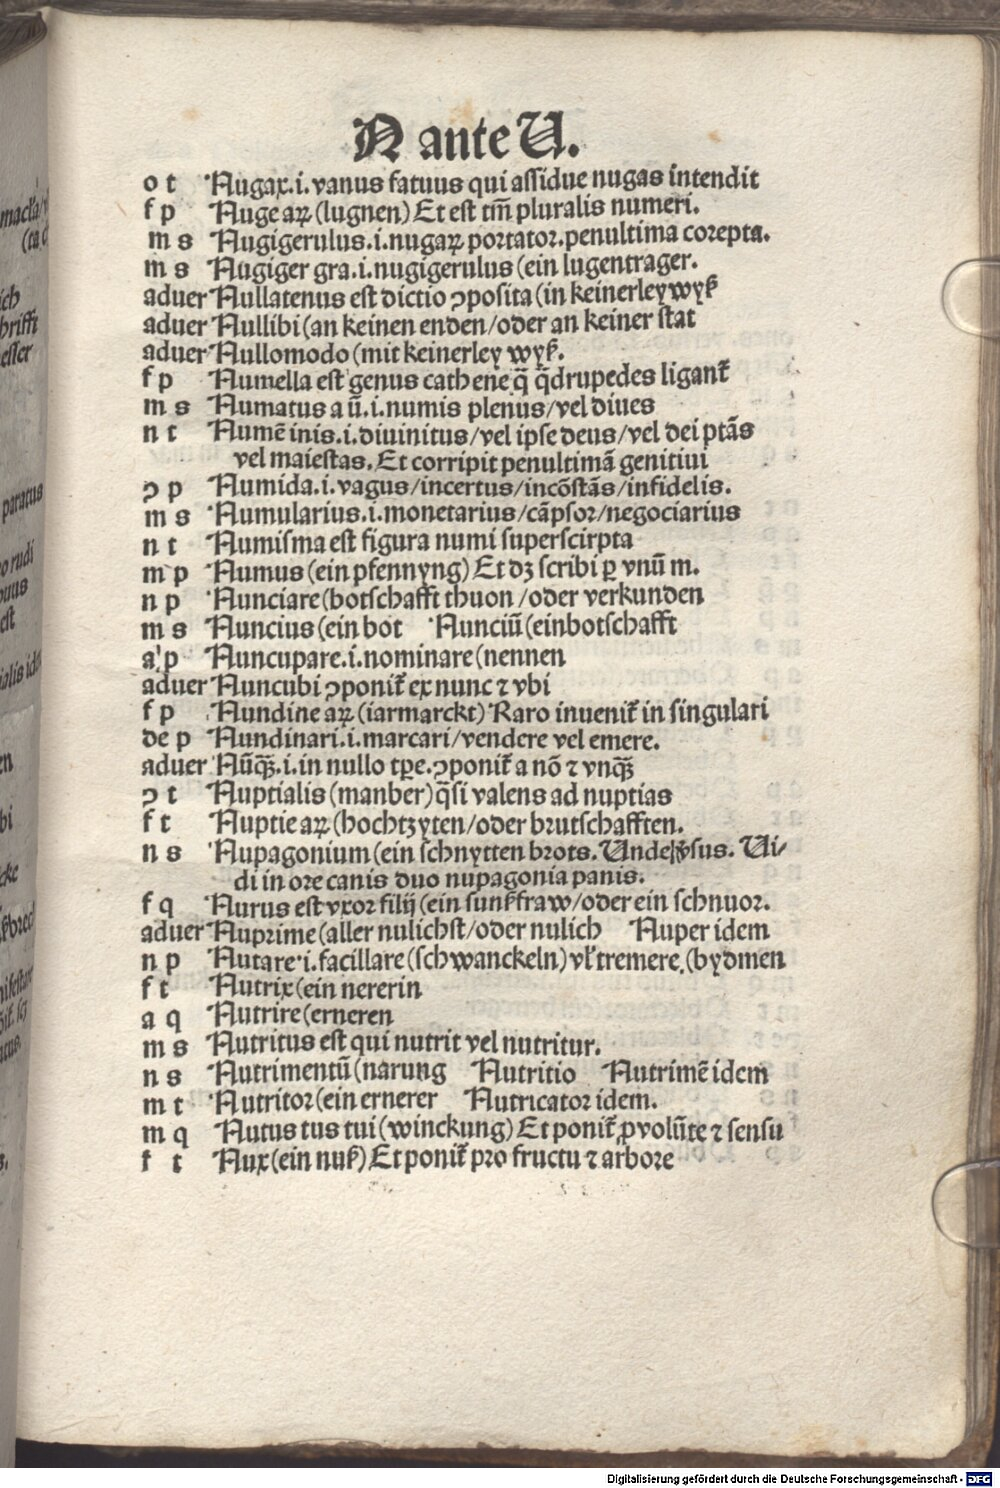 N ante U.
o t Nugax.i.vanus fatuus qui assidue nugas intendit
f p Nuge aꝝ (lugnen) Et est tm̃ pluralis numeri.
m s Nugigerulus.i.nugaꝝ portator.penultima corepta.
m s Nugiger gra.i.nugigerulus (ein lugentrager.
aduer Nullatenus est dictio ꝯposita (in keinerley wyß
aduer Nullibi (an keinen enden/oder an keiner stat
aduer Nullomodo (mit keinerley wyß.
f p Numella est genus cathene q̃ q̃drupedes ligant᷑
m s Numatus a ũ.i.numis plenus/vel diues
n t Numẽ inis.i.diuinitus/vel ipse deus/vel dei ptãs
vel maiestas. Et corripit penultimã genitiui
ꝯ p Numida.i.vagus/incertus/incõstãs/infidelis.
m s Numularius.i.monetarius/cãpsor/negociarius
n t Numisma est figura numi superscirpta
m p Numus (ein pfennyng) Et dꝫ scribi ꝑ vnũ m.
n p Nunciare (botschafft thuon/oder verkunden
m s Nuncius (ein bot Nunciũ (einbotschafft
a p Nuncupare.i.nominare (nennen
aduer Nuncubi ꝯponit᷑ ex nunc ⁊ vbi
f p Nundine aꝝ (iarmarckt) Raro inuenit᷑ in singulari
de p Nundinari.i.marcari/vendere vel emere.
aduer Nũq̃ꝫ.i.in nullo tp̃e.ꝯponit᷑ a nõ ⁊ vnq̃ꝫ
ꝯ t Nuptialis (manber) q̃si valens ad nuptias
f t Nuptie aꝝ (hochtzyten/oder brutschafften.
n s Nupagonium (ein schnytten brots. Unde ṽsus. Ui/
di in ore canis duo nupagonia panis.
f q Nurus est vxor filij (ein sunßfraw/oder ein schnuor.
aduer Nuprime (aller nulichst/oder nulich Nuper idem
n p Nutare.i.facillare (schwanckeln) vł tremere (bydmen
f t Nutrix (ein nererin
a q Nutrire (erneren
m s Nutritus est qui nutrit vel nutritur.
n s Nutrimentũ (narung Nutritio Nutrimẽ idem
m t Nutritor (ein ernerer Nutricator idem.
m q Nutus tus tui (winckung) Et ponit᷑ ꝓ volũte ⁊ sensu
f t Nux (ein nuß) Et ponit᷑ pro fructu ⁊ arbore
macła/
(ta
ich
paratus
rudi
est
Digitalisierung gefördert durch die Deutsche Forschungsgemeinschaft - DFG